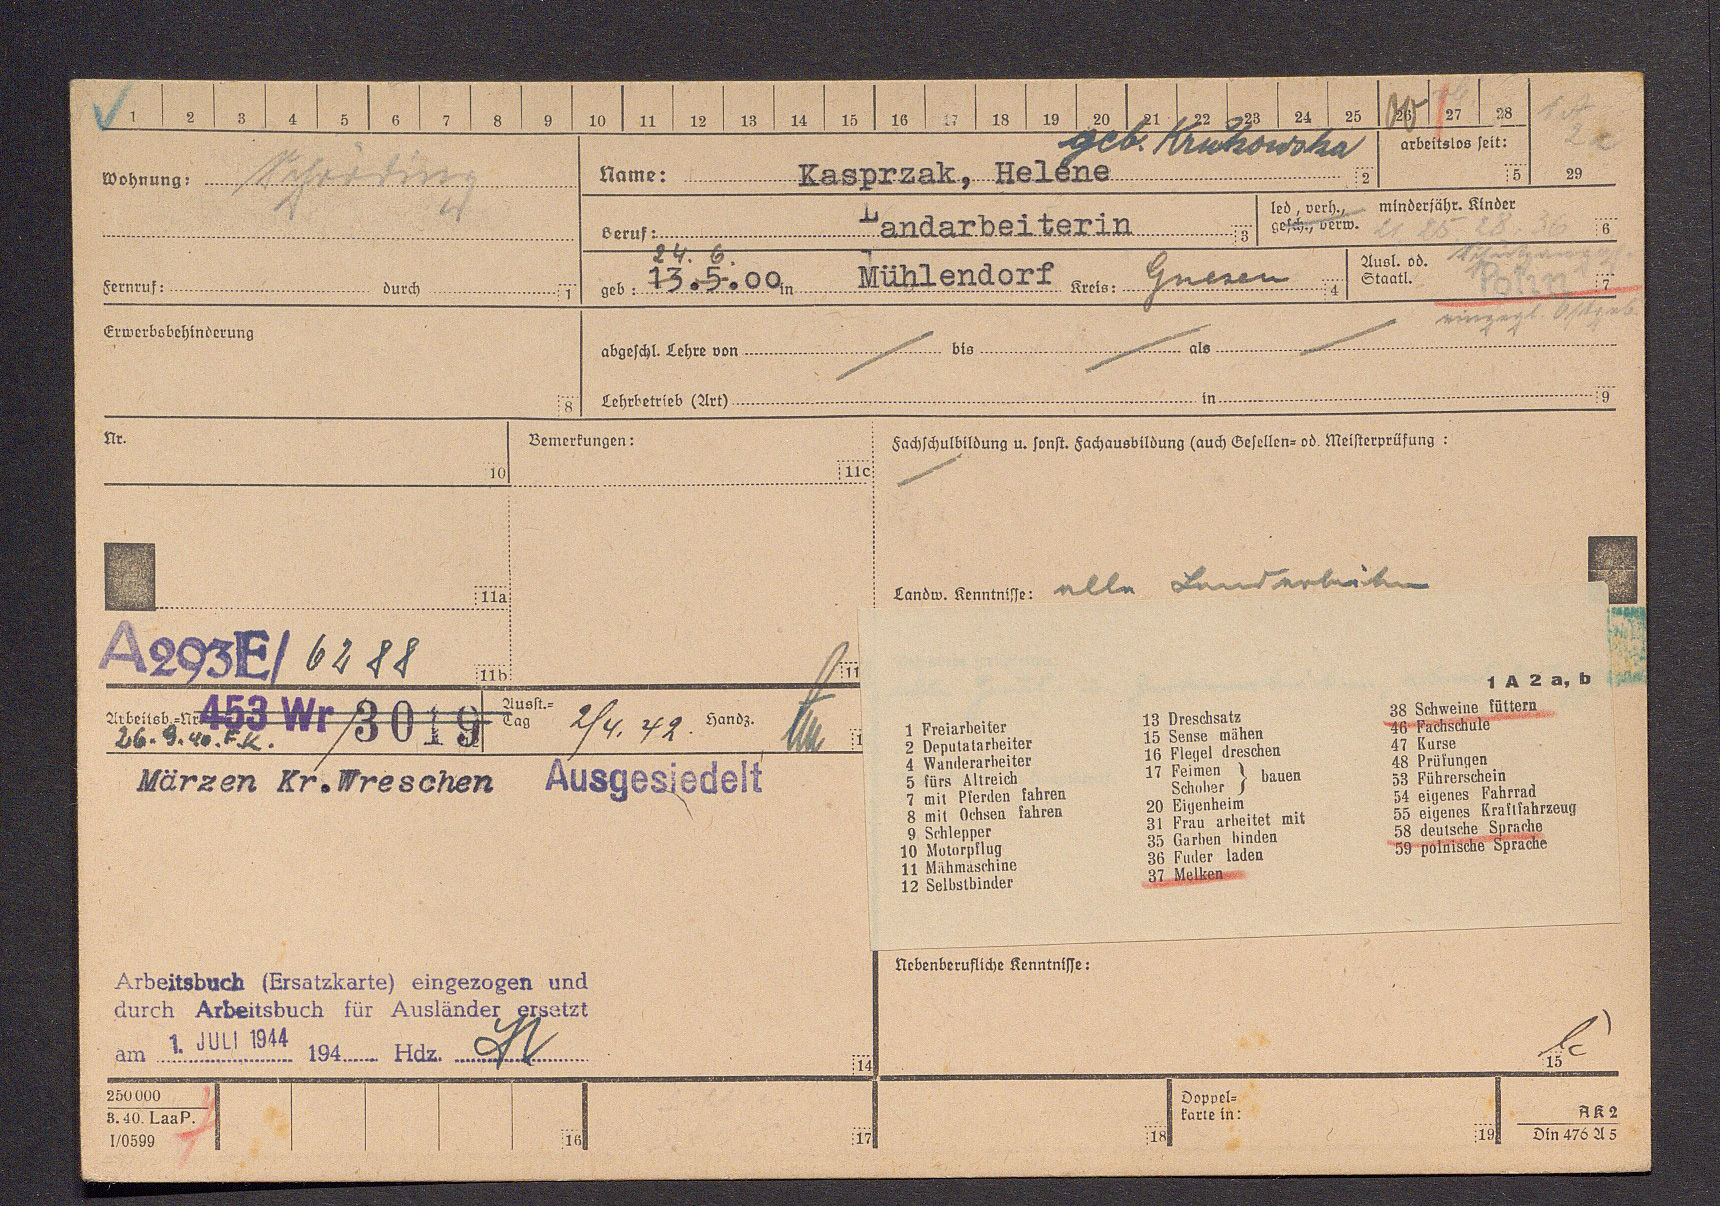 1 2 3 4 5 6 7 8 9 10 11 12 13 14 15 16 17 18 19 20 21 22 23 24 25 26 27 28
geb. Krukowska
Wohnung:
Name: Kasprzak, Helene 2
arbeitslos seit: 5
29
Beruf: Landarbeiterin 3
led., verh., gesch., verw.
minderjähr. Kinder
21 25 28. 36 6
Fernruf: durch 1
24. 6.
geb: 13.5.00 in Mühlendorf Kreis: Gnesen 4
Ausl. od. Staatl. Polin 7
eingegl. Ostgeb.
Erwerbsbehinderung
8
abgeschl. Lehre von bis als
Lehrbetrieb (Art) in 9
Nr.
10
Bemerkungen:
11c
Fachschulbildung u. sonst. Fachausbildung (auch Gesellen= od. Meisterprüfung :
11a
Landw. Kenntnisse: alle Landarbeiten
A293E/6288
11b
11
Arbeitsb.=Nr. 453 Wr/3019
26.9.40. F.K.
Ausst.=
Tag 2/4. 42. Handz.
1
Märzen Kr.Wreschen Ausgesiedelt
1 A 2 a, b
1 Freiarbeiter
2 Deputatarbeiter
4 Wanderarbeiter
5 fürs Altreich
7 mit Pferden fahren
8 mit Ochsen fahren
9 Schlepper
10 Motorpflug
11 Mähmaschine
12 Selbstbinder
13 Dreschsatz
15 Sense mähen
16 Flegel dreschen
17 Feimen } bauen
Schober
20 Eigenheim
31 Frau arbeitet mit
35 Garben binden
36 Fuder laden
37 Melken
38 Schweine füttern
46 Fachschule
47 Kurse
48 Prüfungen
53 Führerschein
54 eigenes Fahrrad
55 eigenes Kraftfahrzeug
58 deutsche Sprache
59 polnische Sprache
Arbeitsbuch (Ersatzkarte) eingezogen und
durch Arbeitsbuch für Ausländer ersetzt
am 1. JULI 1944 194 Hdz.
14
Nebenberufliche Kenntnisse:
15
250 000
3. 40. LaaP.
I/0599
16
17
18
Doppel=
karte in:
19
AK 2
Din 476 A 5